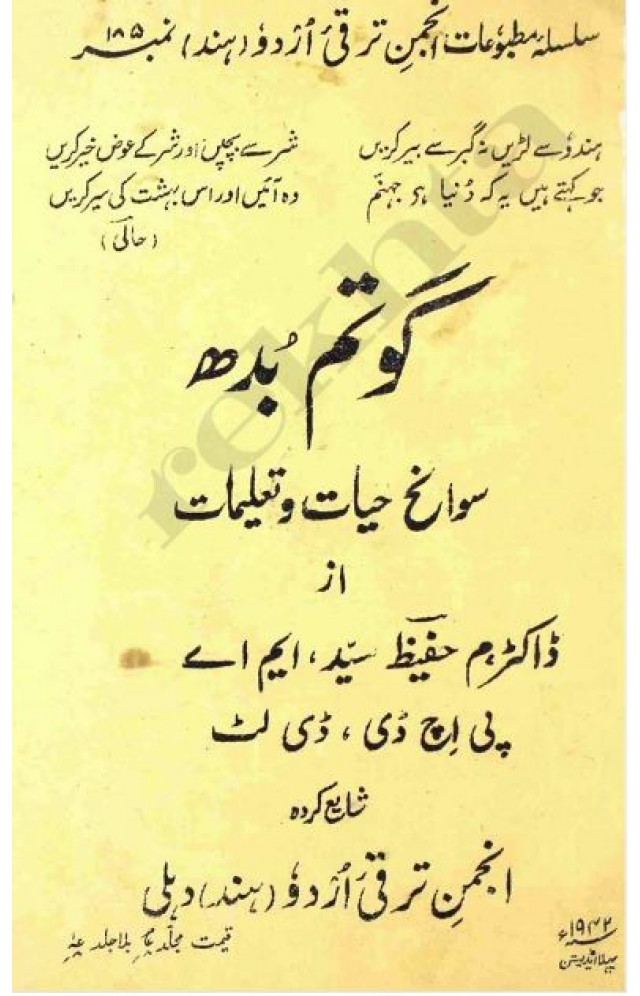 سلسلۂ مطبوعات انجمنِ ترقیٔ اُردوٗ (ہند) نمبر ۱۸۵
ہندوٗ سے لڑیں نہ گبر سے بیر کریں شر سے بچیں اور شر کے عوض خیر کریں
جو کہتے ہیں یہ کہ دُنیا ہی جہنّم وہ آئیں اور اس بہشت کی سیر کریں
(حالیؔ)
گوتم بُدھ
سوانح حیات و تعلیمات
از
ڈاکٹر م حفیظؔ سیّد، ایم اے
پی اِچ ڈی، ڈی لٹ
شایع کردہ
انجمنِ ترقیٔ اُردوٗ (ہند) دہلی
قیمت مجلّد بلاجلد
۱۹۴۲ء
پہلا اڈیشن
rekhta